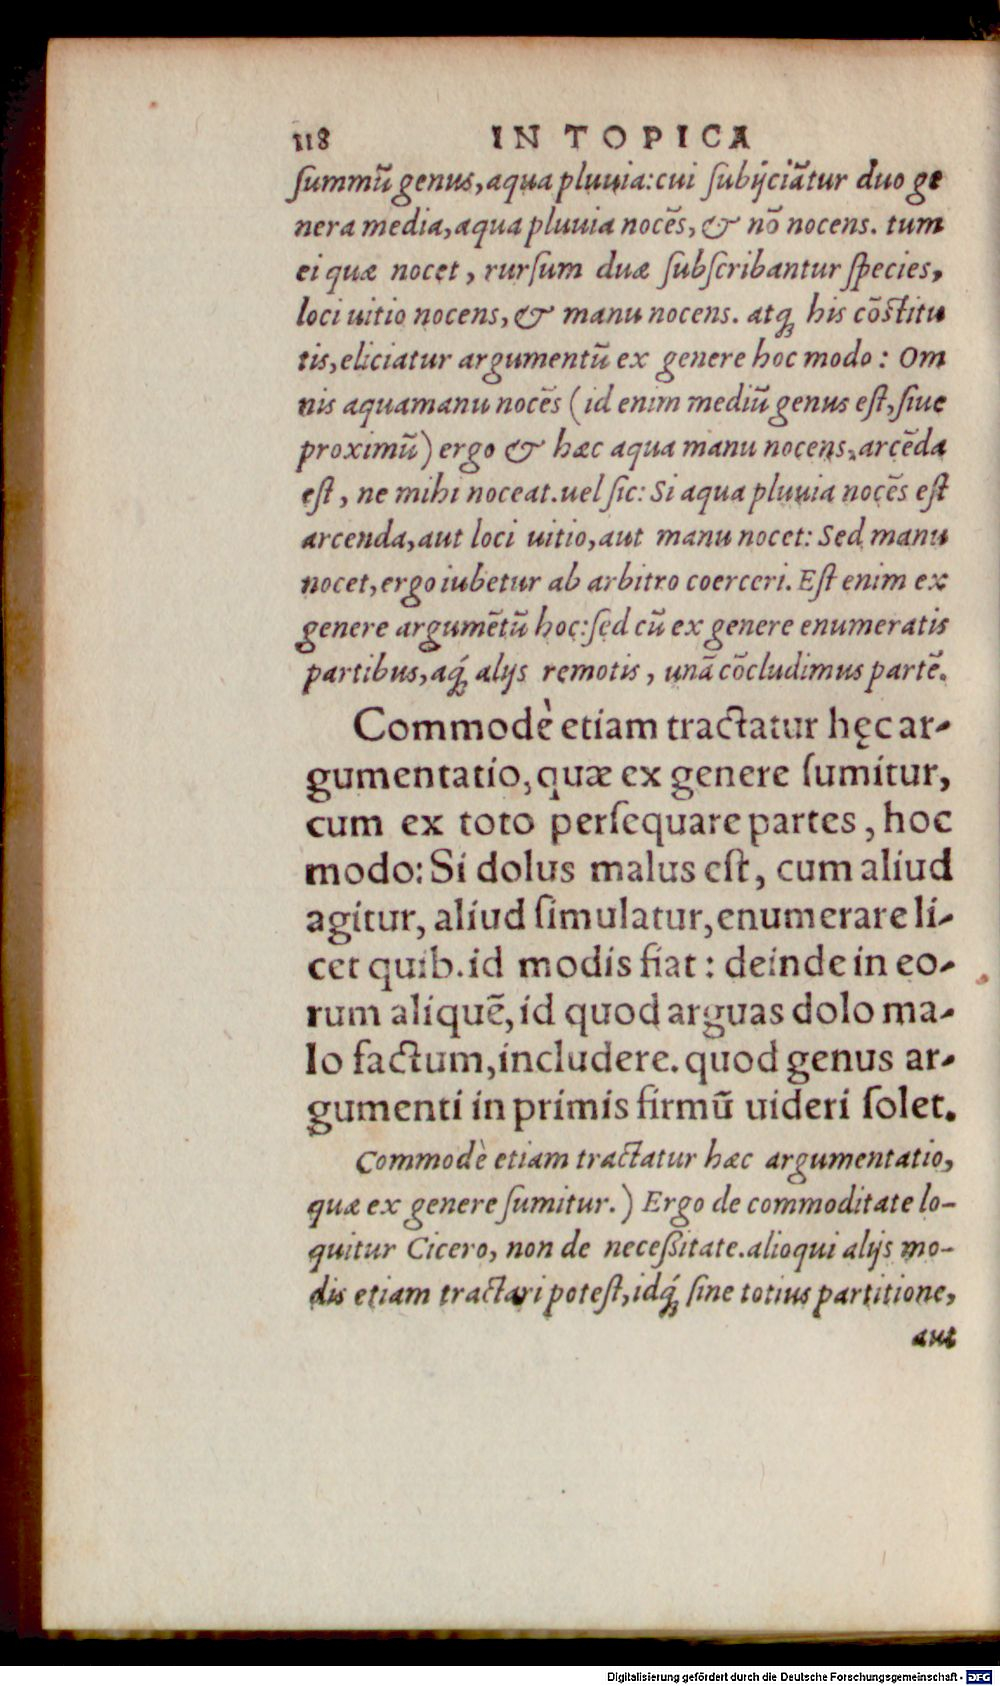 118 IN TOPICA
ſummũ genus, aqua pluuia: cui ſubijciãtur duo ge
nera media, aqua pluuia nocẽs, & nõ nocens. tum
ei quæ nocet, rurſum duæ ſubſcribantur ſpecies,
loci uitio nocens, & manu nocens. atq; his cõſtitu
tis, eliciatur argumentũ ex genere hoc modo: Om
nis aquamanu nocẽs (id enim mediũ genus eſt, ſiue
proximũ) ergo & hæc aqua manu nocens, arcẽda
eſt, ne mihi noceat. uel ſic: Si aqua pluuia nocẽs eſt
arcenda, aut loci uitio, aut manu nocet: Sed manu
nocet, ergo iubetur ab arbitro coerceri. Eſt enim ex
genere argumẽtũ hoc: ſed cũ ex genere enumeratis
partibus, aq́; alijs remotis, unã cõcludimus partẽ.
Commodè etiam tractatur hęc ar-
gumentatio, quæ ex genere ſumitur,
cum ex toto perſequare partes, hoc
modo: Si dolus malus eſt, cum aliud
agitur, aliud ſimulatur, enumerare li-
cet quib. id modis fiat: deinde in eo-
rum aliquẽ, id quod arguas dolo ma-
lo factum, includere. quod genus ar-
gumenti in primis firmũ uideri ſolet.
Commodè etiam tractatur hæc argumentatio,
quæ ex genere ſumitur.) Ergo de commoditate lo-
quitur Cicero, non de neceßitate. alioqui alijs mo-
dis etiam tractari poteſt, idq́; ſine totius partitione,
aut
Digitalisierung gefördert durch die Deutsche Forschungsgemeinschaft - DFG